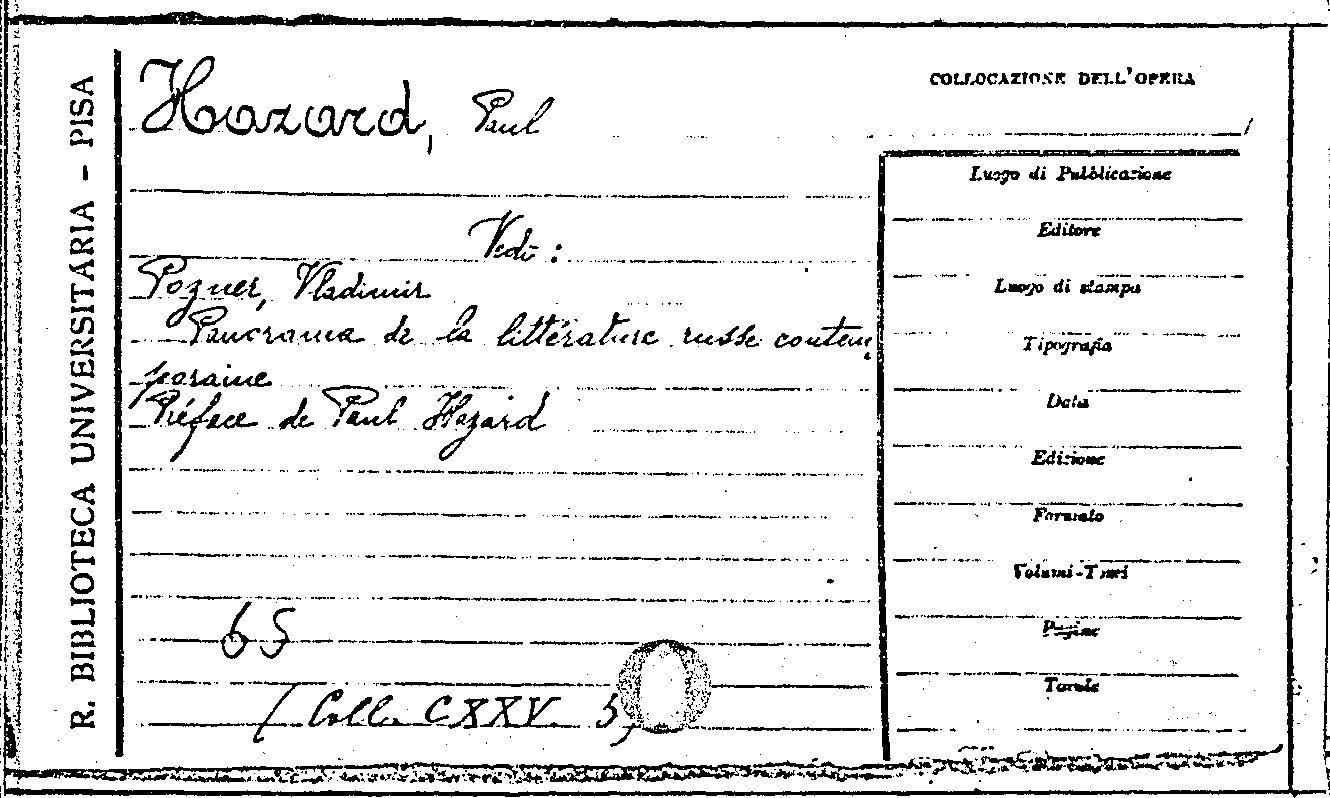 R. BIBLIOTECA UNIVERSITARIA – PISA
Hazard, Paul
Vedi:
Pozner, Vladimir
Panorama de la littérature russe contem
poraine
Préface de Paul Hazard
65
(Coll. CXXV. 5)
COLLOCAZIONE DELL'OPERA
Luogo di Pubblicazione
Editore
Luogo di stampa
Tipografia
Data
Edizione
Formato
Volumi-Tomi
Pagine
Tavole